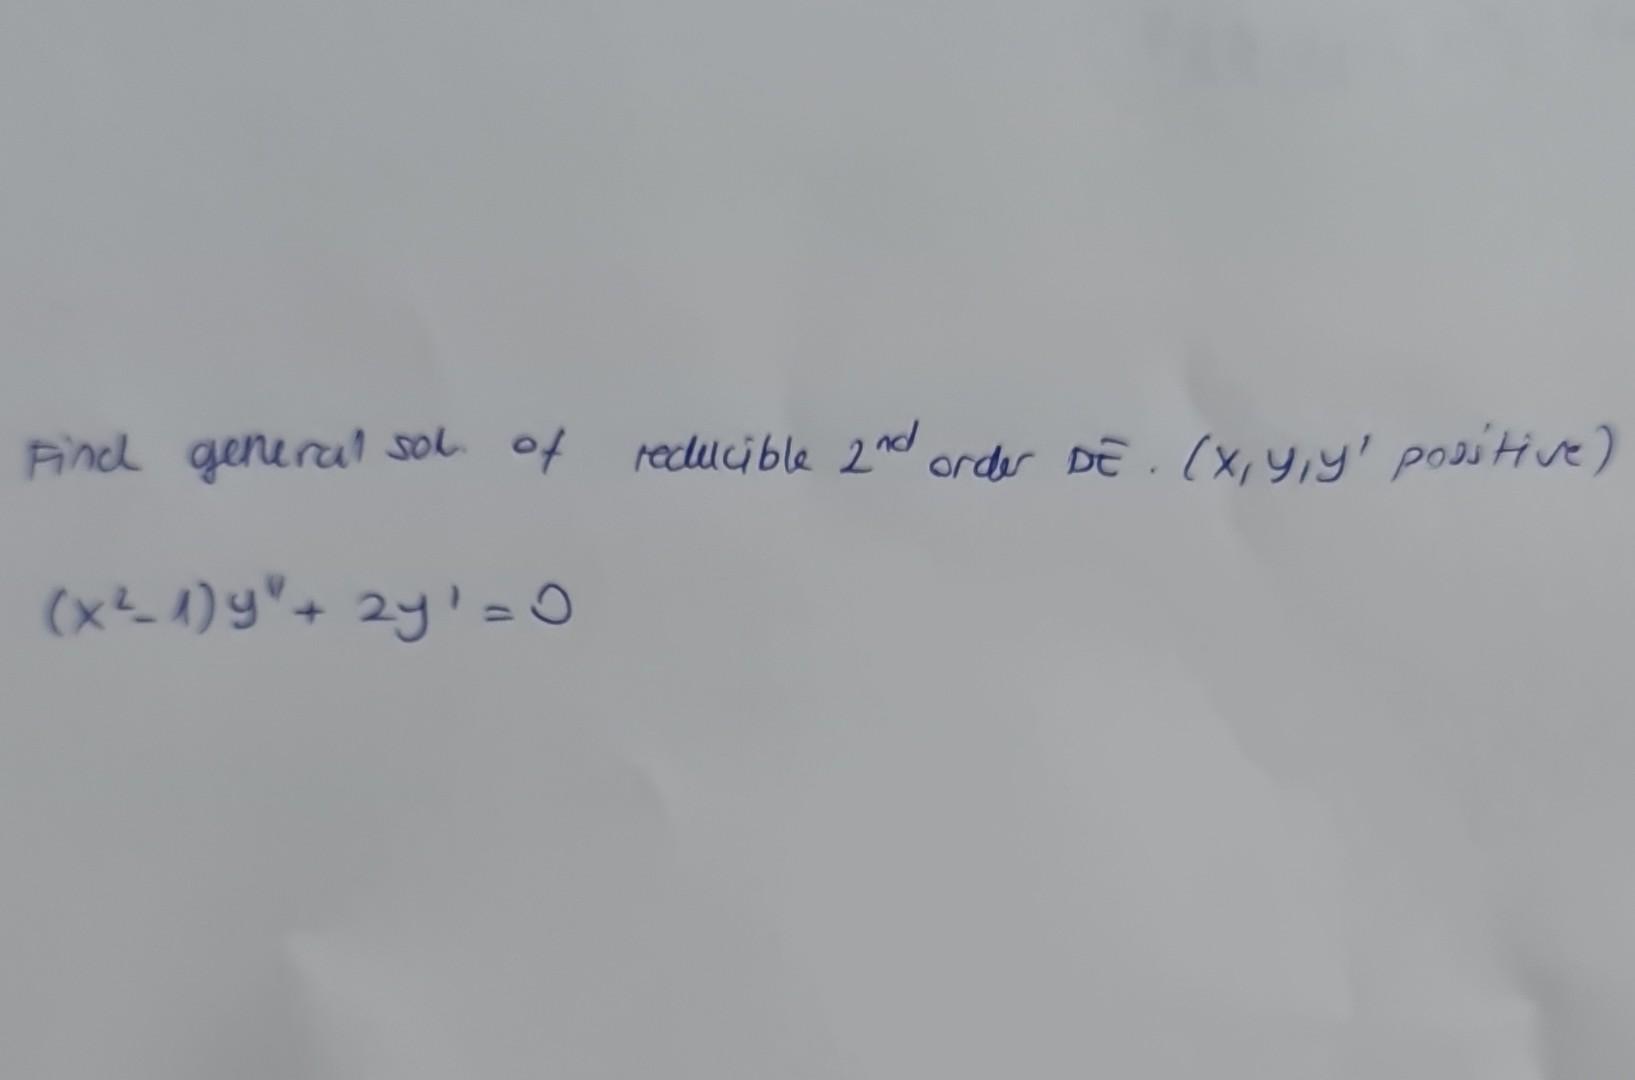 Find general sol. of reducible 2nd order DE. (x, y, y' positive)
(x²-1)y" + 2y' = 0